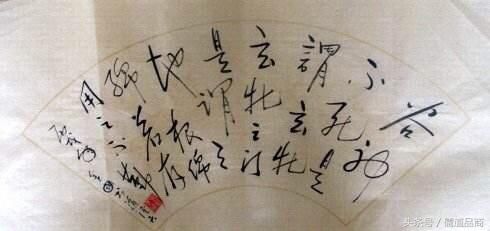 谷神
不死是
謂玄牝
玄牝之门
是谓天
地根绵
绵若存
用之不勤
头条号 / 儒道品商